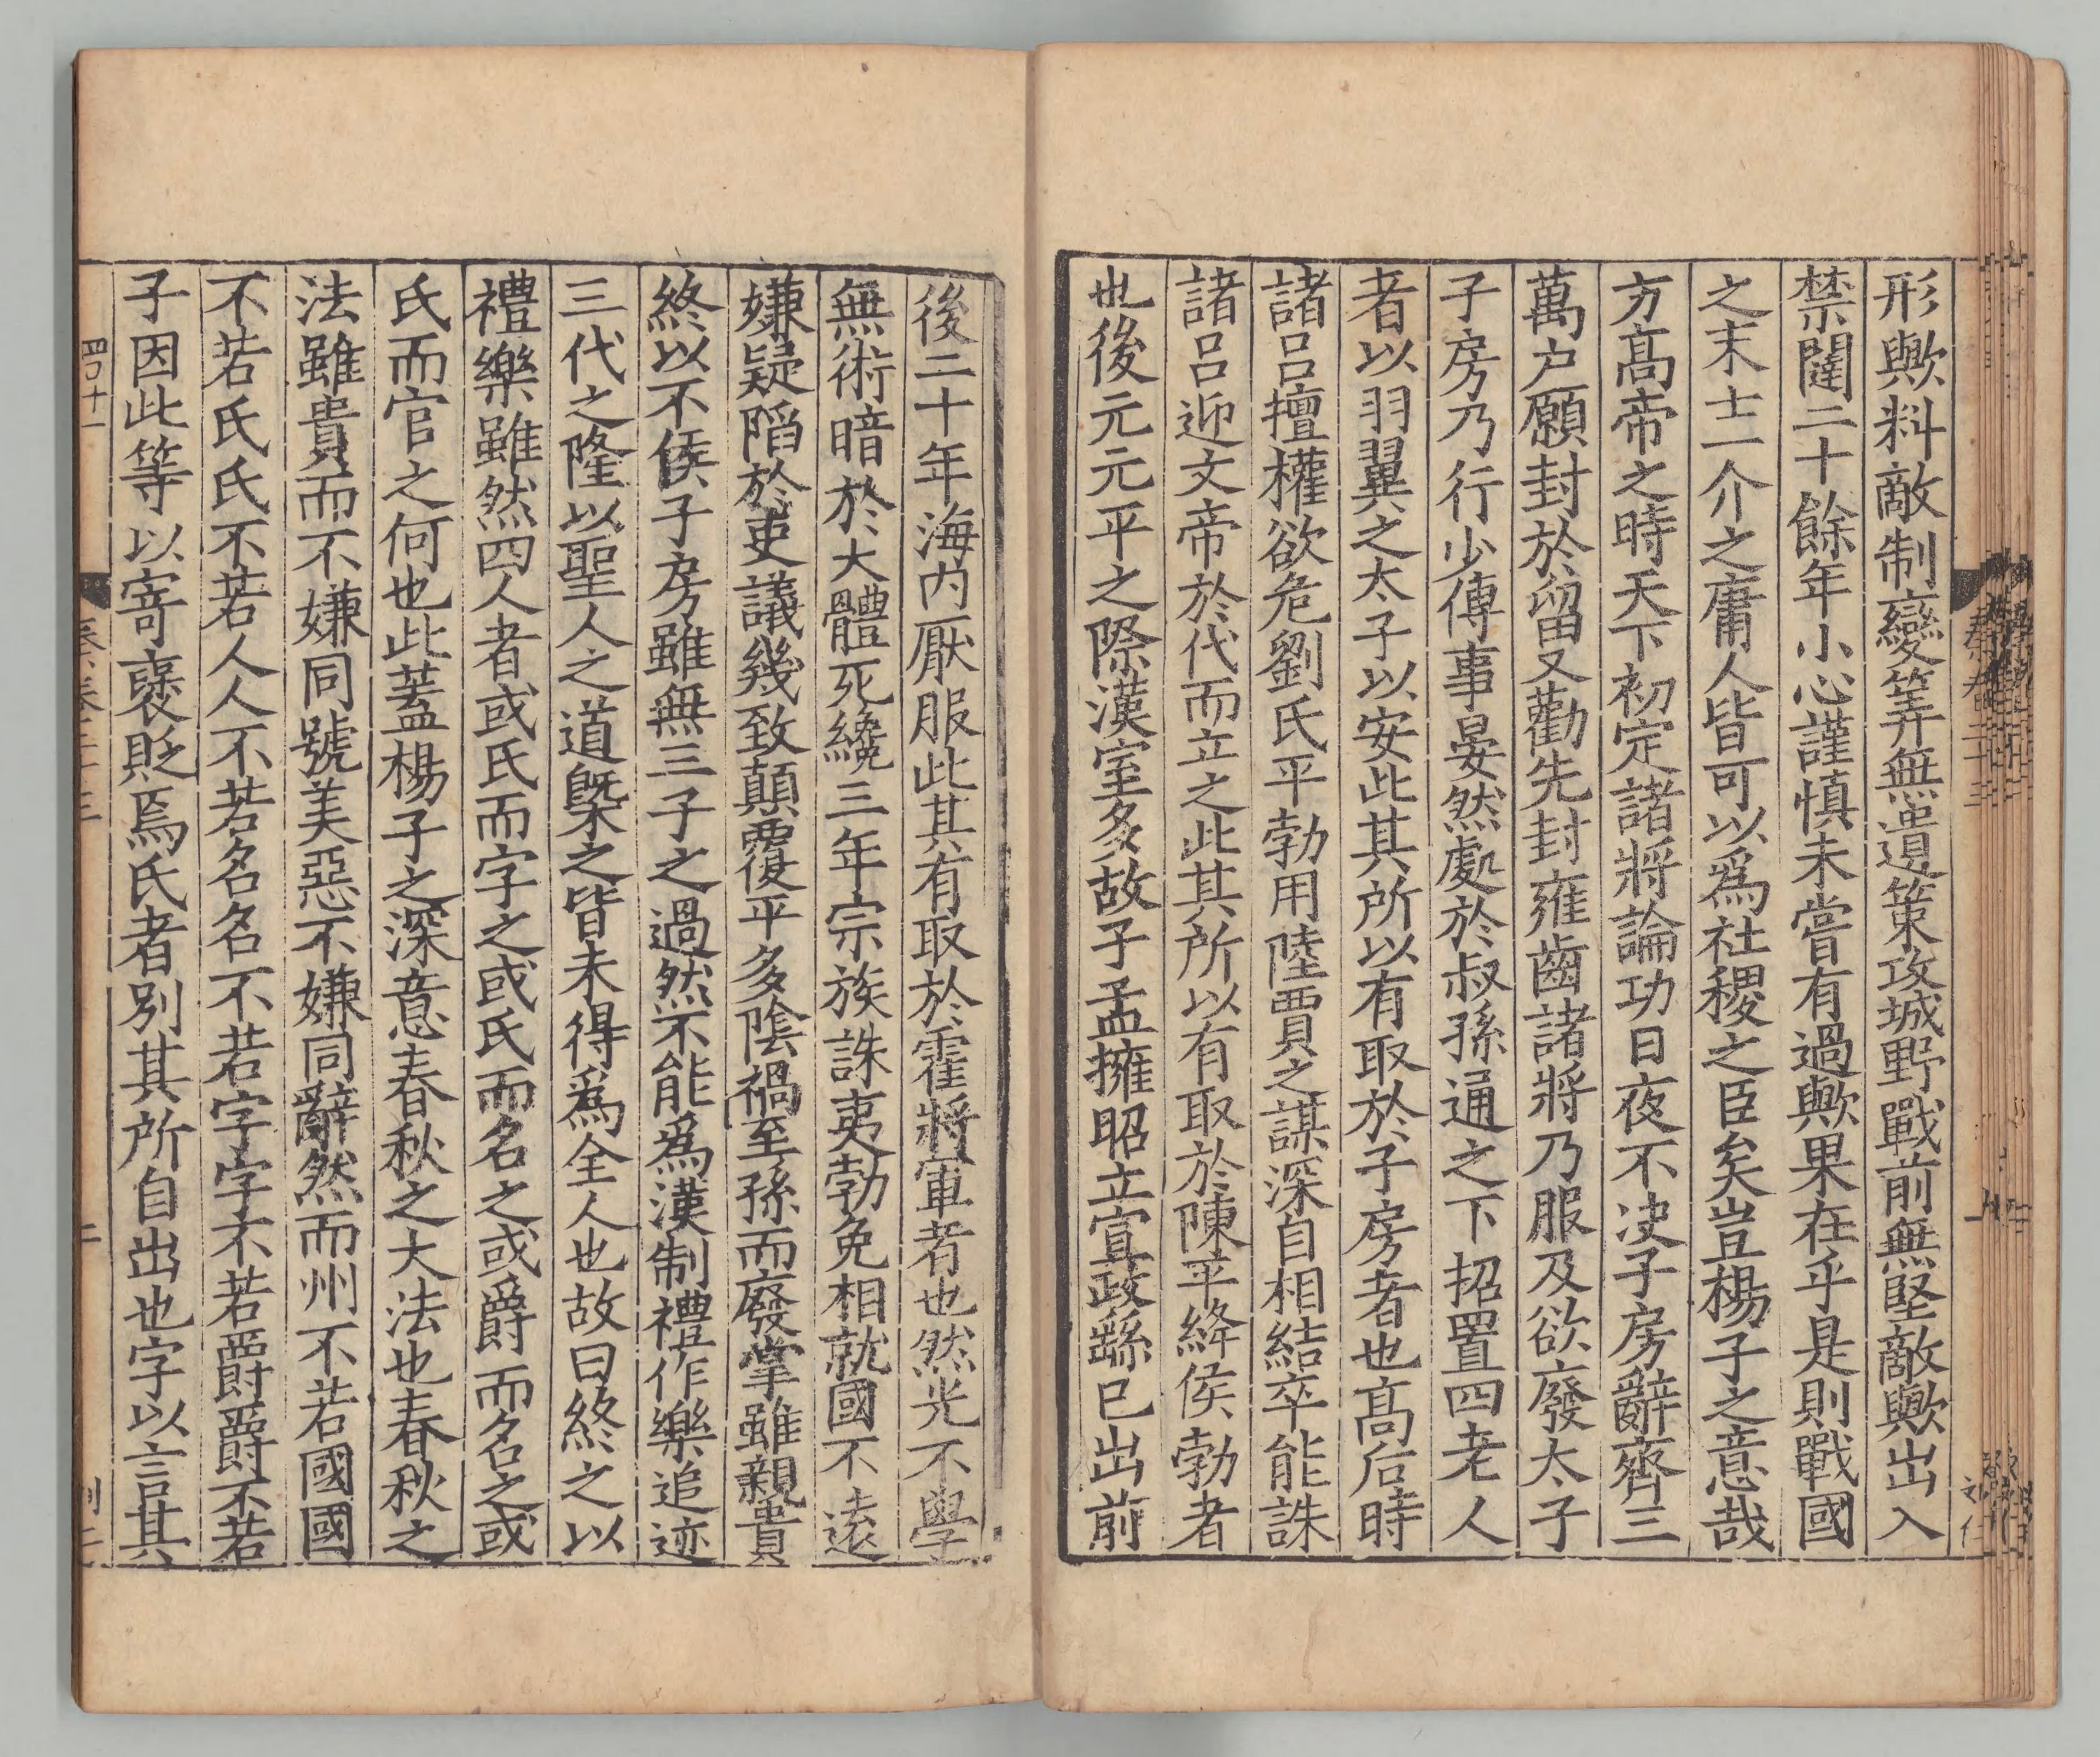 形歟料敵制變筭無遺策攻城野戰前無堅敵歟出入
禁闥二十餘年小心謹慎未嘗有過歟果在乎是則戰國
之末士一介之庸人皆可以爲社稷之臣矣豈楊子之意哉
方髙帝之時天下初定諸將論功日夜不决子房辭齊三
萬户願封於留又勸先封雍齒諸將乃服及欲廢太子
子房乃行少傅事晏然處於叔孫通之下招置四老人
者以羽翼之太子以安此其所以有取於子房者也髙后時
諸吕擅權欲危劉氏平勃用陸賈之謀深自相結卒能誅
諸吕迎文帝於代而立之此其所以有取於陳平絳侯勃者
也後元元平之際漢室多故子孟擁昭立宣政繇已出前
後二十年海内厭服此其有取於霍將軍者也然光不學
無術暗於大體死纔三年宗族誅夷勃免相就國不遠
嫌疑陷於吏議幾致顛覆平多陰禍至孫而廢掌雖親貴
終以不侯子房雖無三子之過然不能爲漢制禮作樂追迹
三代之隆以聖人之道槩之皆未得爲全人也故曰終之以
禮樂雖然四人者或氏而字之或氏而名之或爵而名之或
氏而官之何也此蓋楊子之深意春秋之大法也春秋之
法雖貴而不嫌同號美惡不嫌同辭然而州不若國國
不若氏氏不若人人不若名名不若字字不若爵爵不若
子因此等以寄襃貶焉氏者別其所自出也字以言其
四十一
秦卷二十三
二